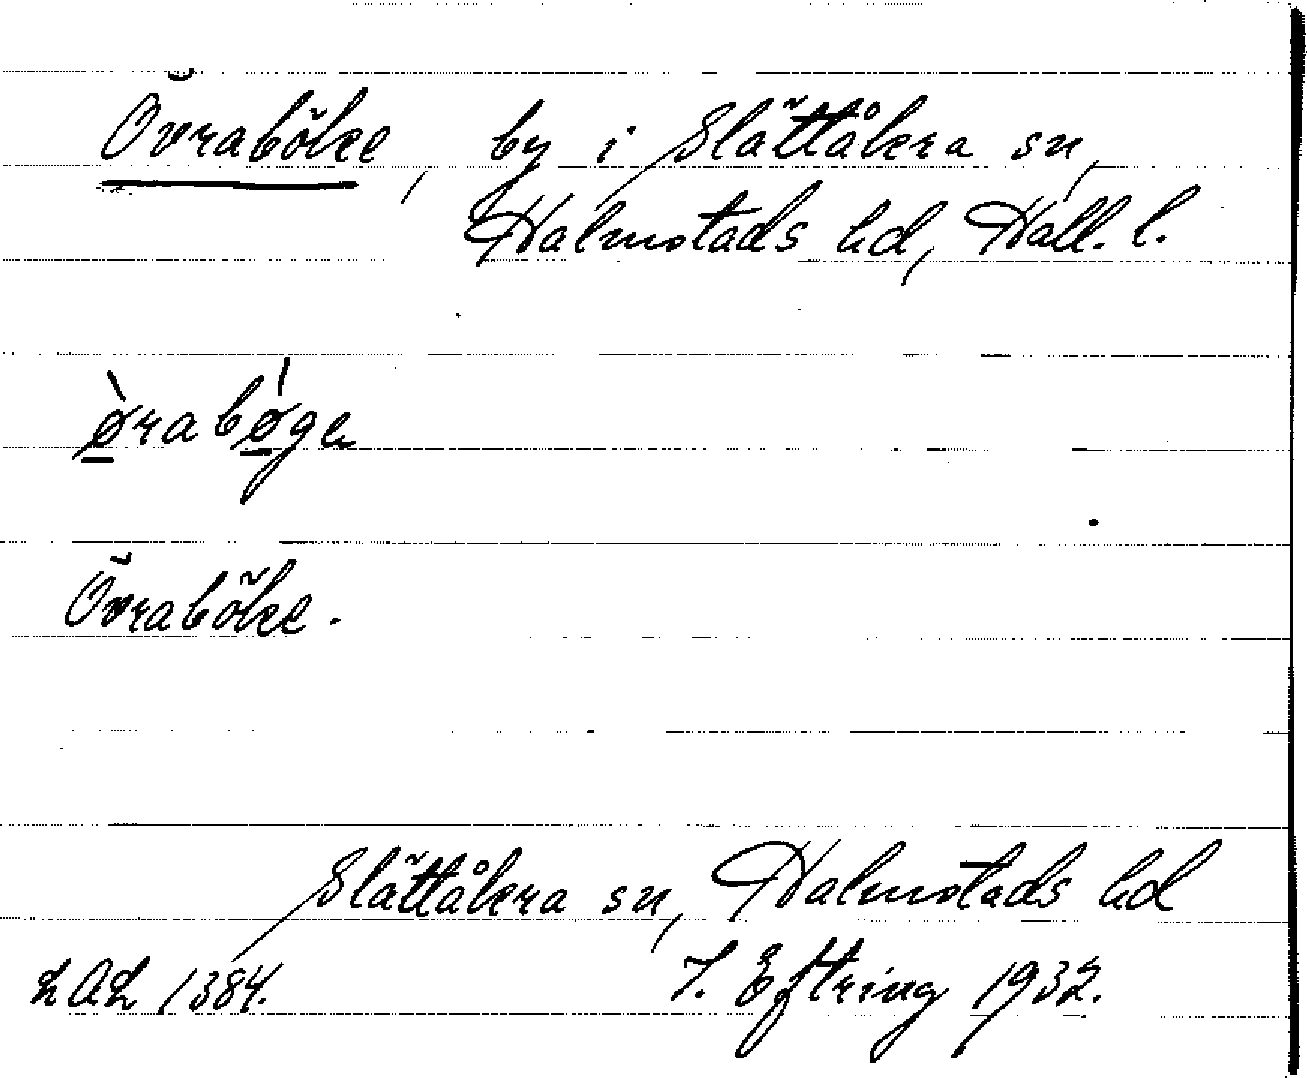 Övraböke, by i Slättåkra sn,
Halmstads hd, Hall. l.
ø̀rabǿge
Övraböke.
Slättåkra sn, Halmstads hd
LAL 1384. F. Eftring 1932.